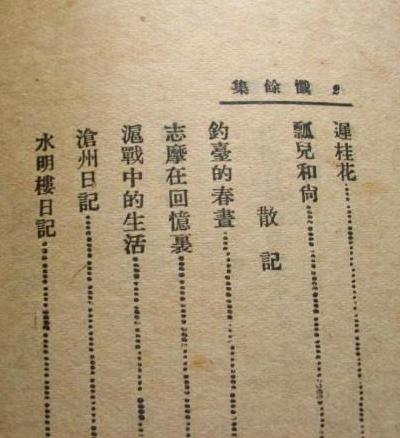 集餘懺 2
遲桂花
瓢兒和尙
散記
釣臺的春晝
志摩在回憶裏
滬戰中的生活
滄州日記
水明樓日記